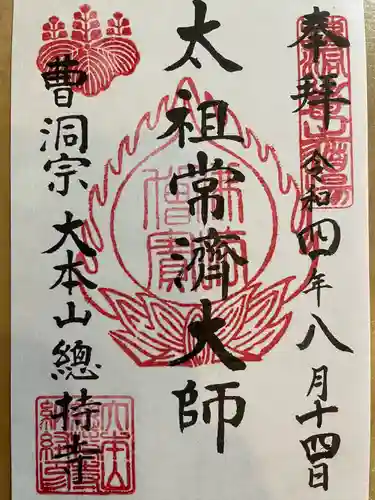 奉拝 令和四年八月十四日
太祖常濟大師
曹洞宗大本山總持寺